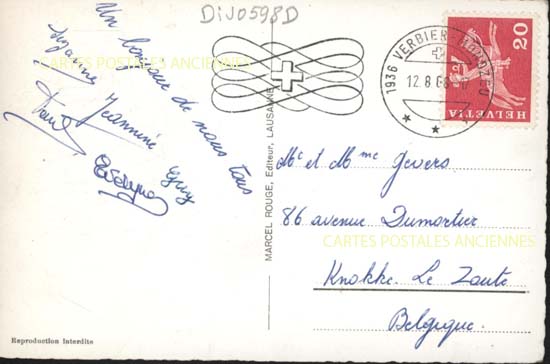 DiJ0598D
Un bonjour de nous tous
Suzanne
Jeannine
Paul
Guy
Evelyne
CARTES POSTALES ANCIENNES
1936 VERBIER
12.8.68
HELVETIA
20
MARCEL ROUGE, Editeur, LAUSANNE
Mr et Mme Jevers
86 avenue Dumortier
CARTES POSTALES ANCIENNES
Knokke-Le Zoute
Belgique.
Reproduction Interdite